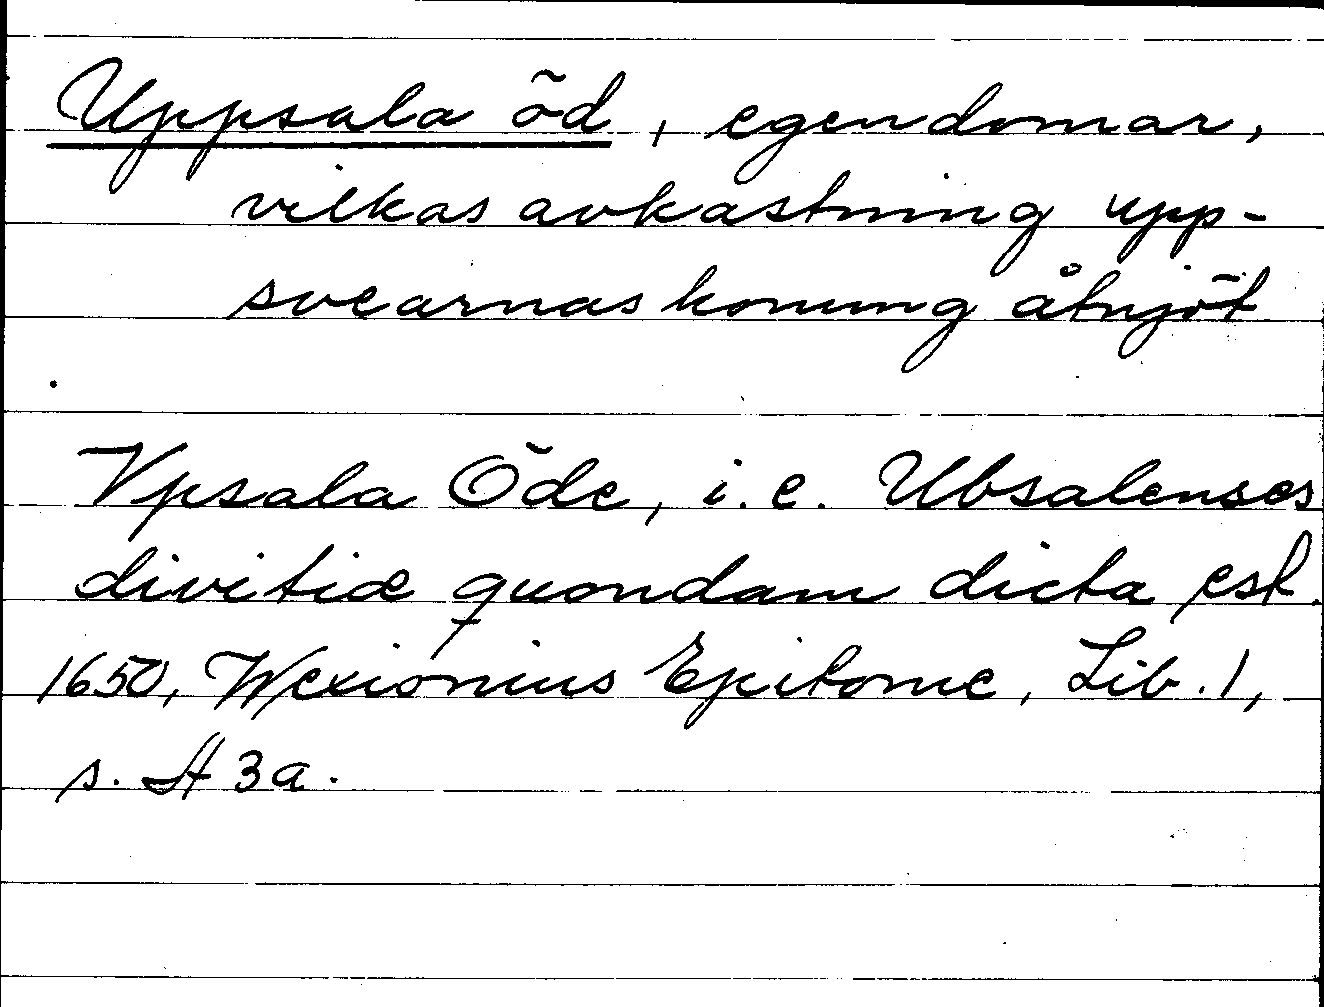 Uppsala öd, egendomar,
vilkas avkastning upp-
svearnas konung åtnjöt
Vpsala Öde, i.e. Ubsalenses
divitiæ quondam dicta est.
1650, Wexionius Epitome, Lib. 1,
s. A 3a.